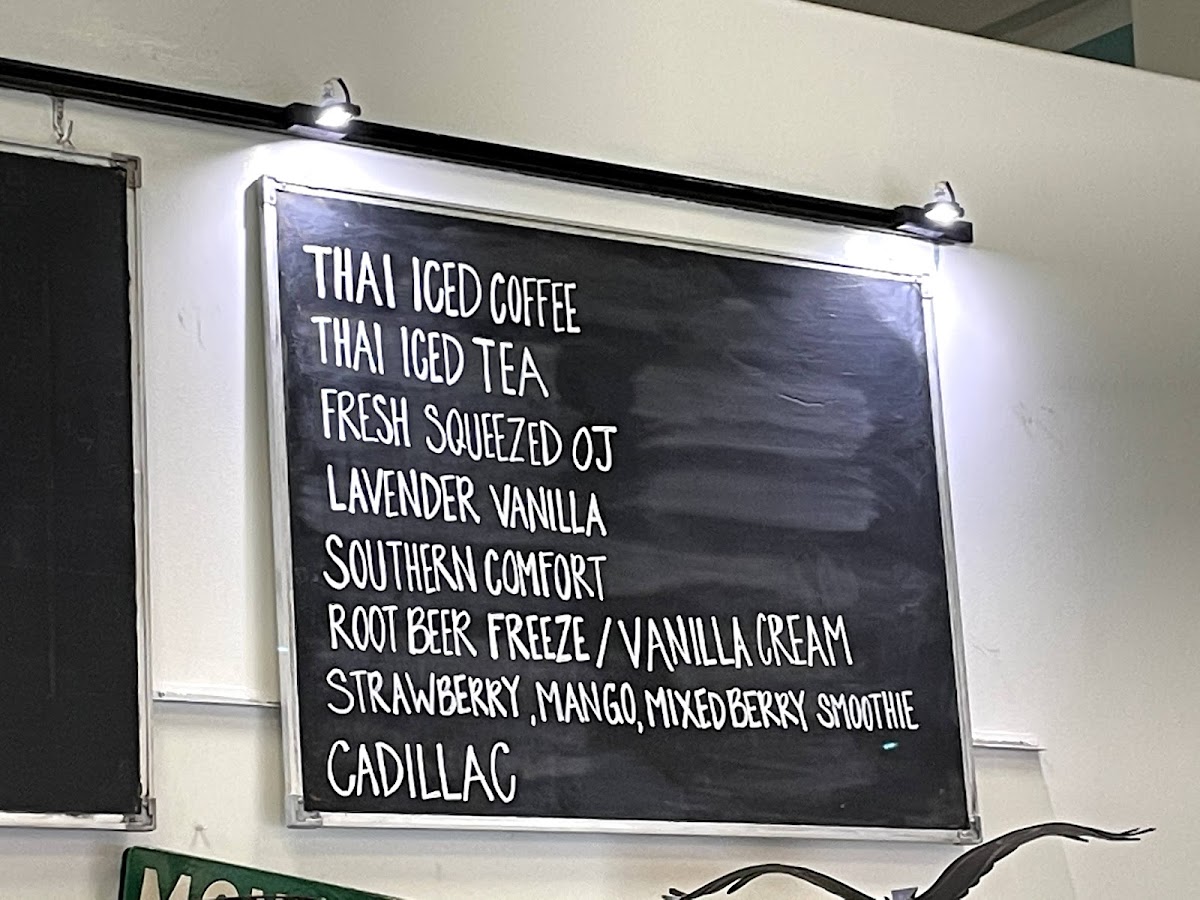 THAI ICED COFFEE
THAI ICED TEA
FRESH SQUEEZED OJ
LAVENDER VANILLA
SOUTHERN COMFORT
ROOT BEER FREEZE / VANILLA CREAM
STRAWBERRY, MANGO, MIXED BERRY SMOOTHIE
CADILLAC